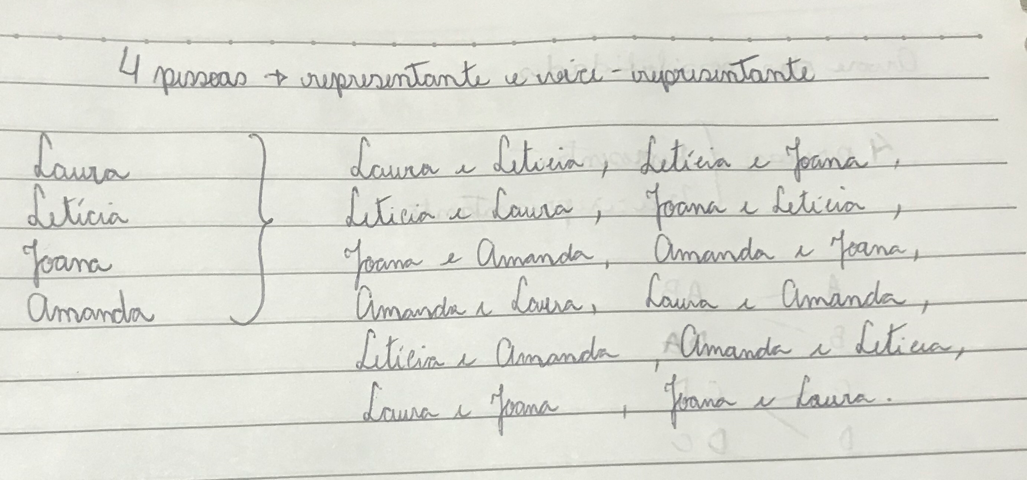 4 pessoas → representante e vice-representante
Laura } Laura e Letícia, Letícia e Joana,
Letícia Letícia e Laura, Joana e Letícia,
Joana Joana e Amanda, Amanda e Joana,
Amanda Amanda e Laura, Laura e Amanda,
Letícia e Amanda, Amanda e Letícia,
Laura e Joana, Joana e Laura.